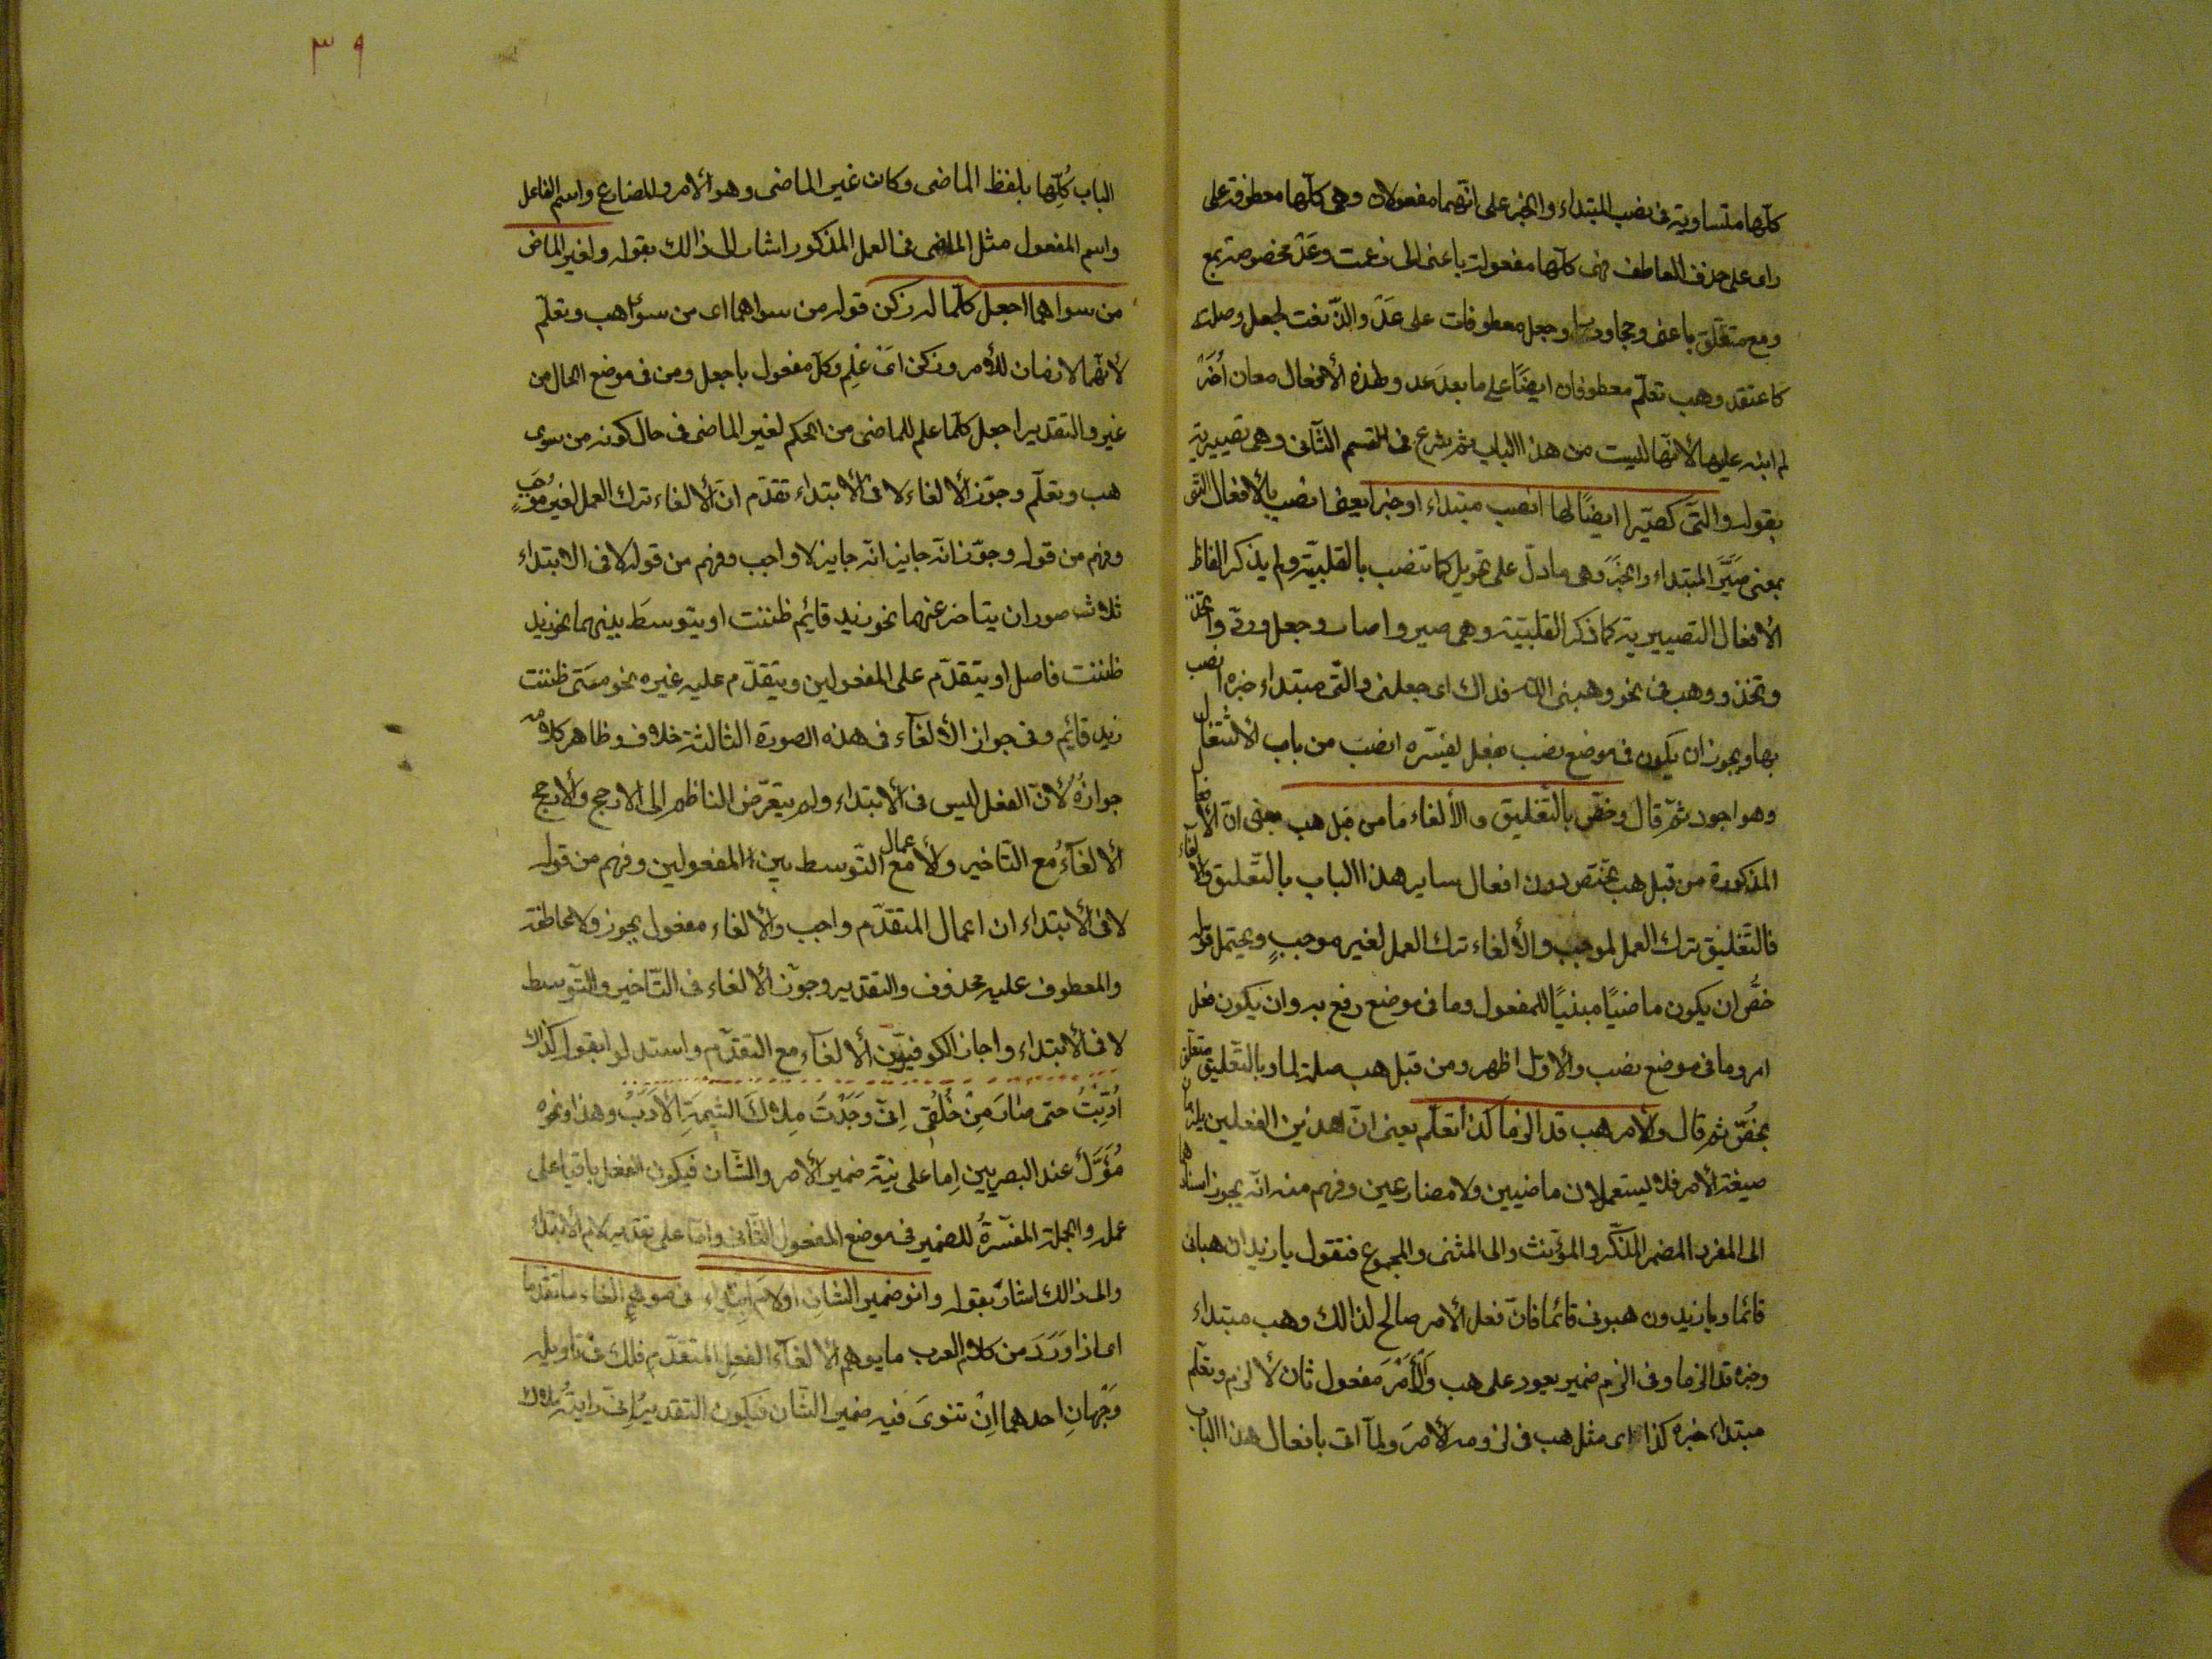 كلّها متساوية فى نصب المبتداء والخبر على انّهما مفعولان وهى كلّها معطوفة على
راى على حذف العاطف فهى كلّها مفعولات باعنى الى زعمت وعَدّ مخصوصة بمع
ومع متعلّق باعنى وحجا ودرى وجعل معطوفات على عَدّ والّذ نعت لجعل وصلته
كاعتقد وهب تعلّم معطوفان ايضًا على ما بعد عد ولهذه الأفعال معان أُخَرُ
لم انبه عليها لأنّها ليست من هذا الباب ثم شرع فى القسم الثّانى وهى تصييرية
بقوله والتّى كصيّرا ايضًا لها انصب مبتداء او خبرا يعنى انصب بالأفعال التّى
بمعنى صيّر المبتداء والخبرَ وهى ما دلّ على تحويل كما تنصب بالقلبيّة ولم يذكر الفاظ
الأفعال التصييرية كما ذكر القلبيّة وهى صير واصار وجعل وردّ واتّخذ
وتخذ ووهب فى نحو وهبنى اللّه فداك اى جعلنى والتّى مبتداء خبره انصب
بها ويجوز ان يكون فى موضع نصب بفعل يفسّره انصب من باب الأشتغال
وهو اجود ثمّ قال وخصّ بالتّعليق والألغاء ما من قبل هب يعنى انّ الأفعال
المذكورة من قبل هب تختص دون افعال ساير هذا الباب بالتّعليق والألغاء
فالتّعليق ترك العمل لموجب والألغاء ترك العمل لغير موجبٍ ويحتمل قوله
خصَّ ان يكون ماضيًا مبنيًا للمفعول وما فى موضع رفع به وان يكون فعل
امر وما فى موضع نصب والأوّل اظهر ومن قبل هب صلة لما وبالتّعليق متعلّق
بخُصّ ثم قال والأمر هب قد الزما كذا تعلّم يعنى انّ هذين الفعلين يلزمان
صيغة الأمر فلا يستعملان ماضيين ولا مضارعين وفهم منه انّه يجوز اسنادهما
الى المفرد المضمر المذكّر والمؤنث والى المثنى والمجموع فتقول يا زيدان هبانى
قائما ويا زيدون هبونى قائما فانّ فعل الأمر صالح لذالك وهب مبتداء
وخبره قد الزما وفى الزم ضمير يعود على هب وَالأَمْرَ مفعول ثان لألزم وتعلّم
مبتداء خبره كذا اى مثل هب فى لزومه الأمرَ ولمّا اتى بأفعال هذا الباب
٣٩
الباب كُلّها بلفظ الماضى وكان غير الماضى وهو الأمر والمضارع واسم الفاعل
واسم المفعول مثل الماضى فى العمل المذكور اشار الى ذالك بقوله ولغير الماض
من سواهما اجعل كلّما له زكن قوله من سواهما اى من سوا هب وتعلّم
لأنّهما لازمان للأمر وزكن اىْ عُلِم وكلّ مفعول باجعل ومن فى موضع الحال من
غير والتقدير اجعل كلّما علم للماضى من الحكم لغير الماضى فى حال كونه من سوى
هب وتعلّم وجوّز الألغاء لا فى الأبتداء تقدّم انّ الألغاء ترك العمل لغير موجَبٍ
وفهم من قوله وجوّز انّه جايز انّه جايز لا واجب وفهم من قوله لا فى الابتداء
ثلاث صور ان يتاخر عنهما نحو زيد قائيم ظننت او يتوسَط بينهما نحو زيد
ظننت فاصل او يتقدّم على المفعولين ويتقدّم عليه غيره نحو متى ظننت
زيد قائيم وفى جواز الألغآء فى هذه الصورة الثالثة خلاف وظاهر كلامه
جوازهُ لأنّ الفعل ليس فى الأبتداء ولم يتعرّض الناظم الى الارجح والأرجح
الألغآءُ مع التّاخير والأعمال مع التّوسط بين المفعولين وفهم من قوله
لا فى الأبتداء ان اعمال المتقدّم واجب والألغاء مفعول بجوز ولا عاطفة
والمعطوف عليه محذوف والتقدير وجوّز الألغاء فى التّاخير والتّوسط
لا فى الأبتداء واجاز الكوفيّون الألغآء مع التقدّم واستدلوا بقوله كذاك
أُدِّبْتُ حتى صَارَ مِنْ خُلُقِى اِنّى وَجَدْتُ مِلاَكَ الشِيمَةِ الأَدَبُ وهذا ونحوه
مُؤَوَّلٌ عند البصريين اِما على نيّة ضمير الأمر والشّان فيكون الفعل باقيا على
عمله والجملة المفسّرةُ للضمير فى موضع المفعول الثّانى وامّا على تقدير لام الأبتداء
والى ذالك اشارَ بقوله وانو ضمير الشانِ اولامَ ابتداء فى موهمٍ الغاء ما تقدّما
اى اذا وَرَدَ من كلام العرب ما يوهم الألغآء الفعل المتقدّم فلك فى تاويله
وَجْهَانِ احدهما اِنْ تنوىَ فيه ضمير الشّان فيكون التقدير اِنّى رايتهُ ملاك